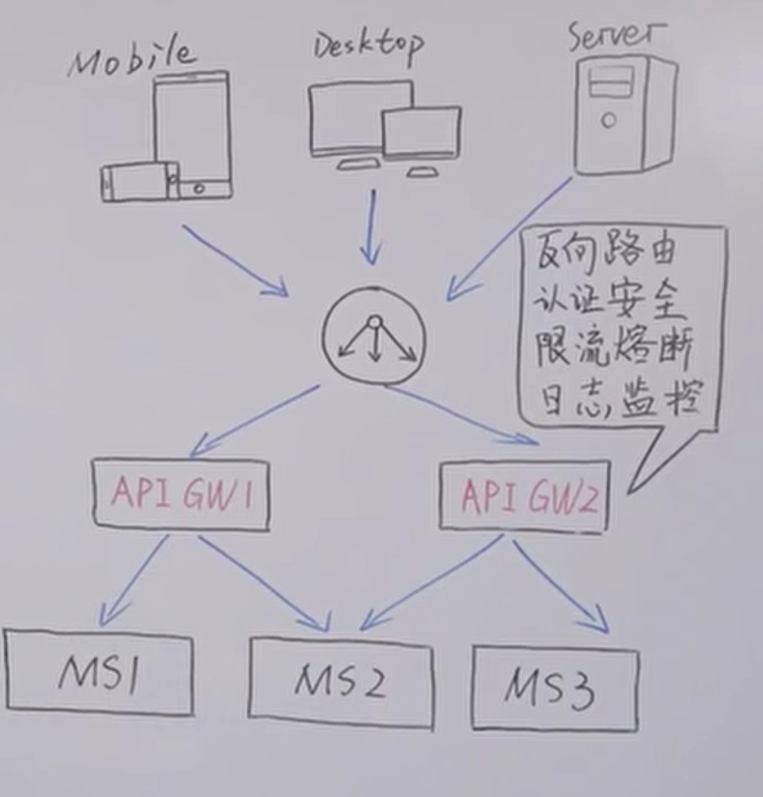 Mobile
Desktop
Server
反向路由
认证安全
限流熔断
日志,监控
API GW1
API GW2
MS1
MS2
MS3